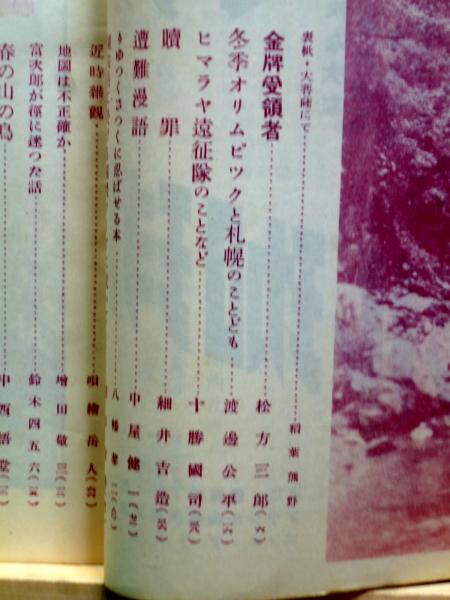 表紙・大菩薩にて 稲葉熊野
金牌受領者 松方三郎(六)
冬季オリムピツクと札幌のことども 渡邊公平(六)
ヒマラヤ遠征隊のことなど 十勝國司
贖罪 細井吉造
遭難漫語 中屋健一
りゆつくさつくに忍ばせる本
近時雜觀 唄繪岳人
地圖は不正確か 增田敬三
富次郎が徑に迷つた話 鈴木四五六
春の山の鳥 中西悟堂